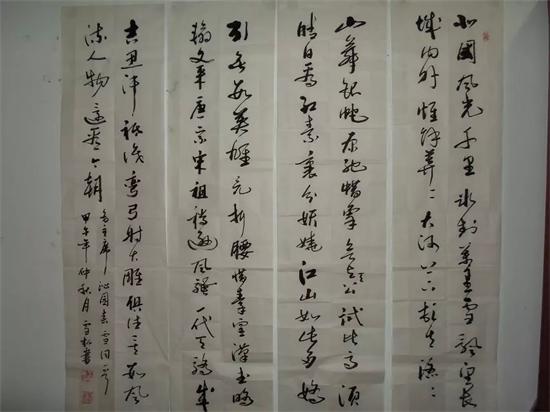 北國風光千里冰封萬里雪飄望長
城内外惟餘莽々大河上下頓失滔々
山舞銀蛇原馳蜡象欲与天公試比高須
晴日看紅素裹分妖嬈江山如此多嬌
引無數英雄競折腰惜秦皇漢武略
輸文采唐宗宋祖稍遜風騷一代天驕成
吉思汗祗識彎弓射大雕俱往矣數風
流人物還看今朝
毛主席沁園春雪詞一首
甲午年仲秋月雪松書